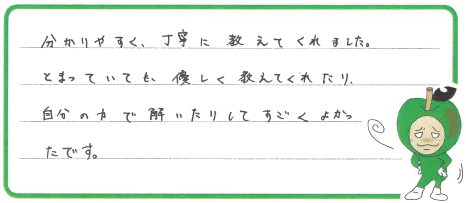 分かりやすく、丁寧に教えてくれました。
とまっていても、優しく教えてくれたり、
自分の力で解いたりしてすごくよかっ
たです。